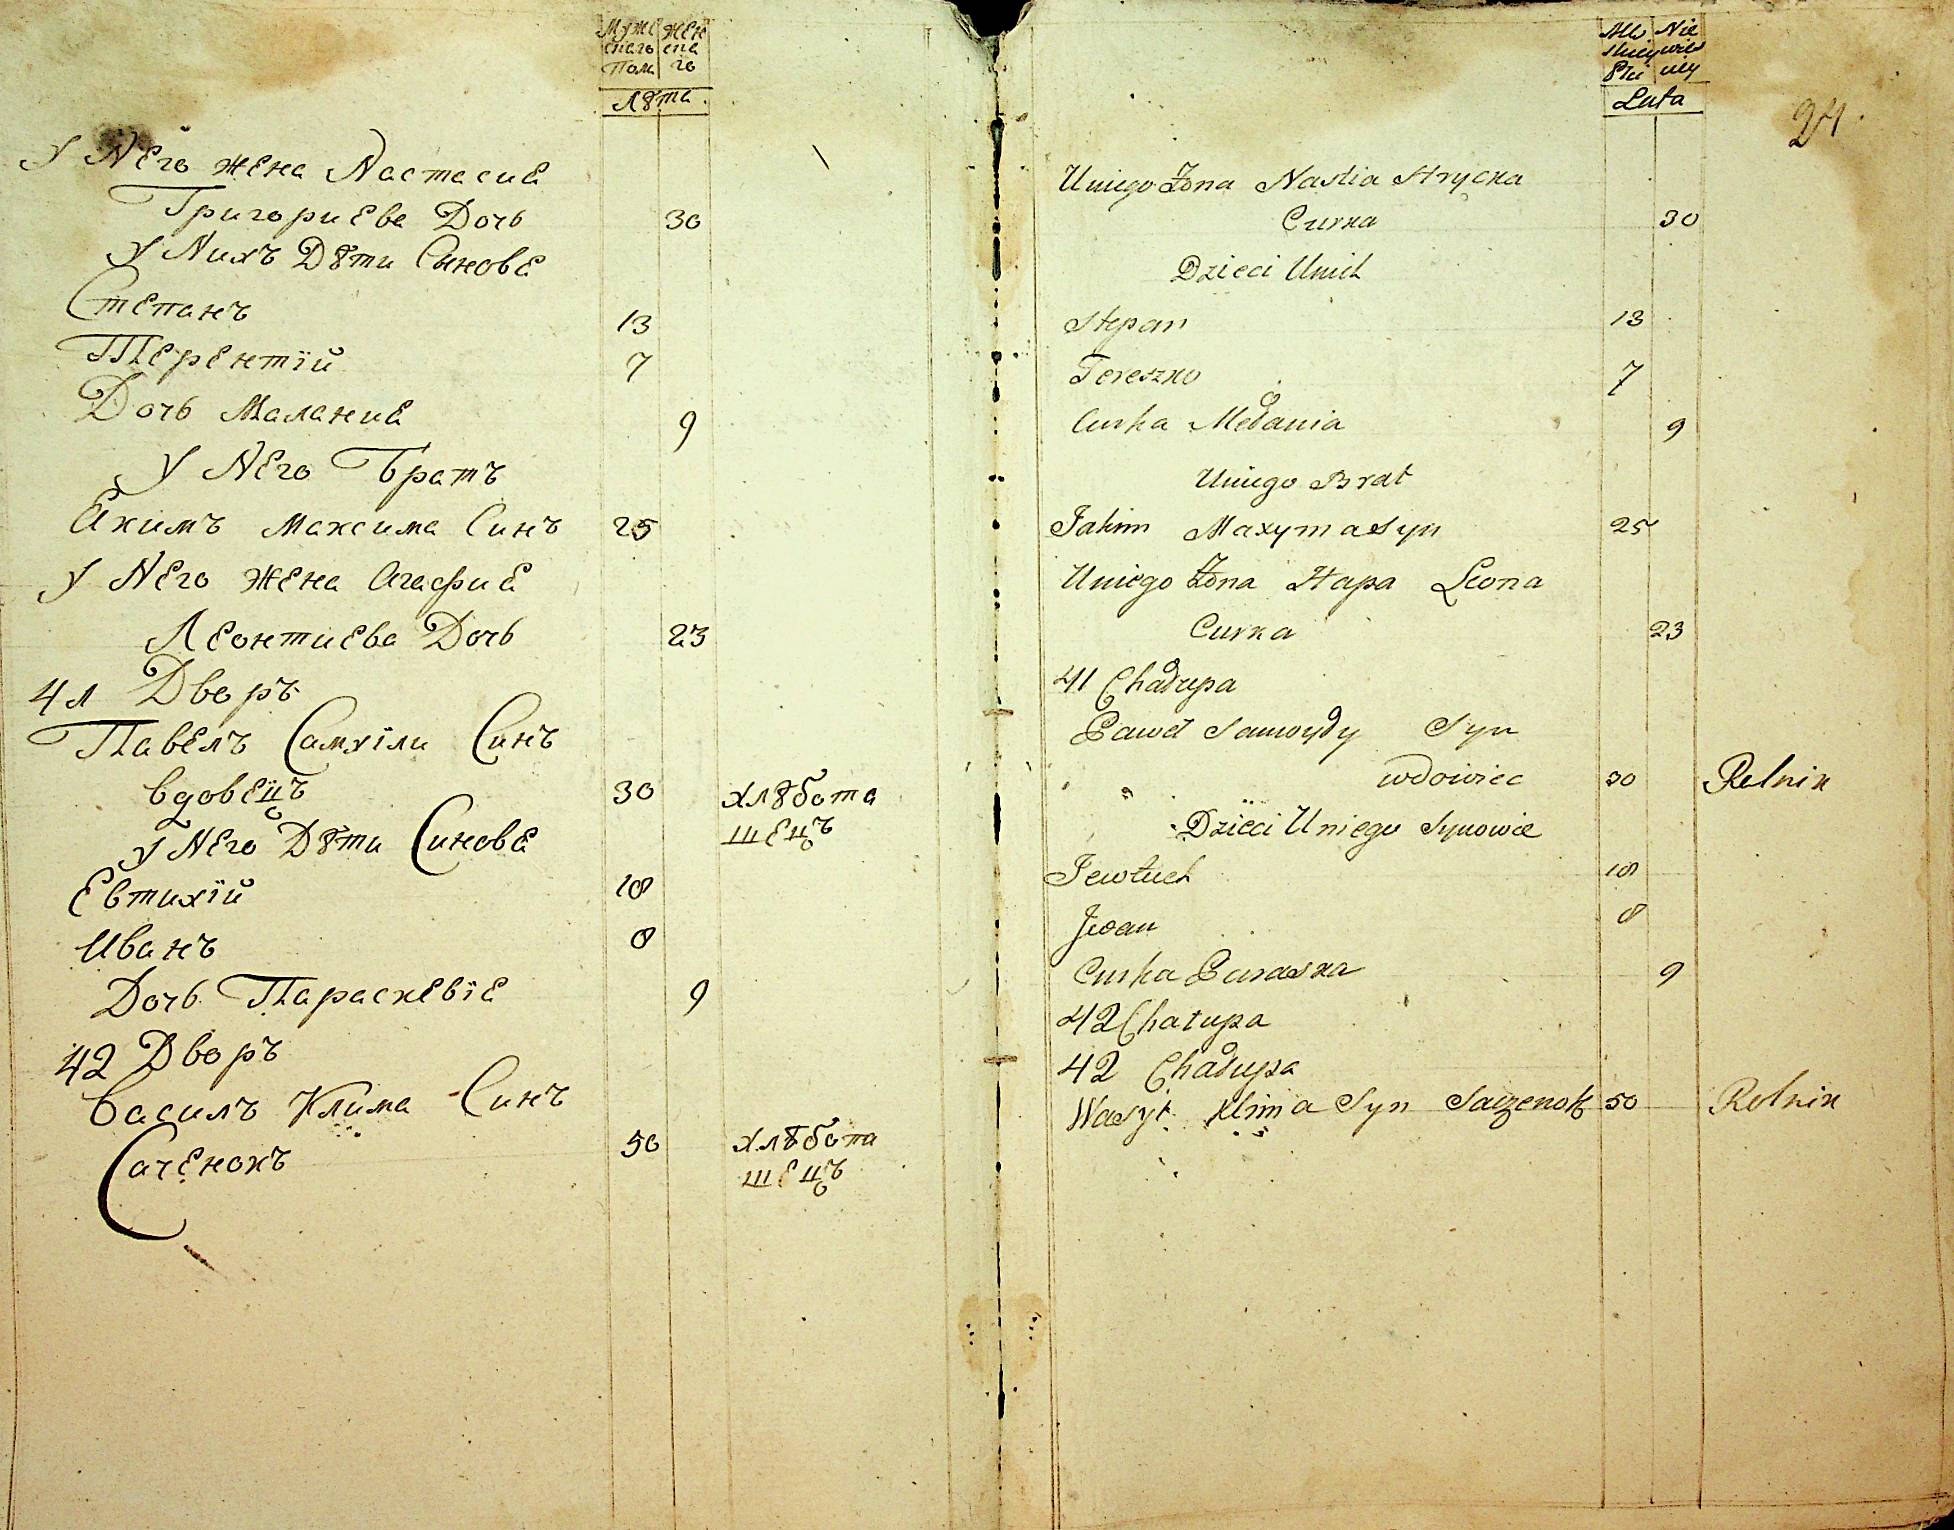 Муже жен
скаго ска
Пола го
Лѣта
У Него жена Настасиа
Григориева Дочь 30
У Нихъ Дѣти Синовѣ
Степанъ 13
Терентїй 7
Дочь Маланиа 9
У Него Братъ
Екимъ Максима Синъ 25
У Него жена Агафиа
Леонтиева Дочь 23
41 Дворъ
Павелъ Самуїли Синъ
вдовецъ 30 хлѣбопа
шецъ
У Него Дѣти Синовѣ
Евтихїй 10
Иванъ 8
Дочь Параскевїа 9
42 Дворъ
Василъ Клима Синъ
Саченокъ 50 хлѣбопа
шецъ
Mę Nie
skiey wie
Płci ściey
Lata
24
Uniego Żona Nastia Hrycka
Curka 30
Dzieci Unich
Stepan 13
Tereszko 7
Curka Mełania 9
Uniego Brat
Jakim Maxyma Syn 25
Uniego Żona Hapa Leona
Curka 23
41 Chałupa
Paweł Samuyły Syn
wdowiec 30 Rolnik
Dzieci Uniego Synowie
Jewtuch 10
Jwan 8
Curka Paraska 9
42 Chatupa
42 Chałupa
Wasyl Klima Syn Saczenok 50 Rolnik